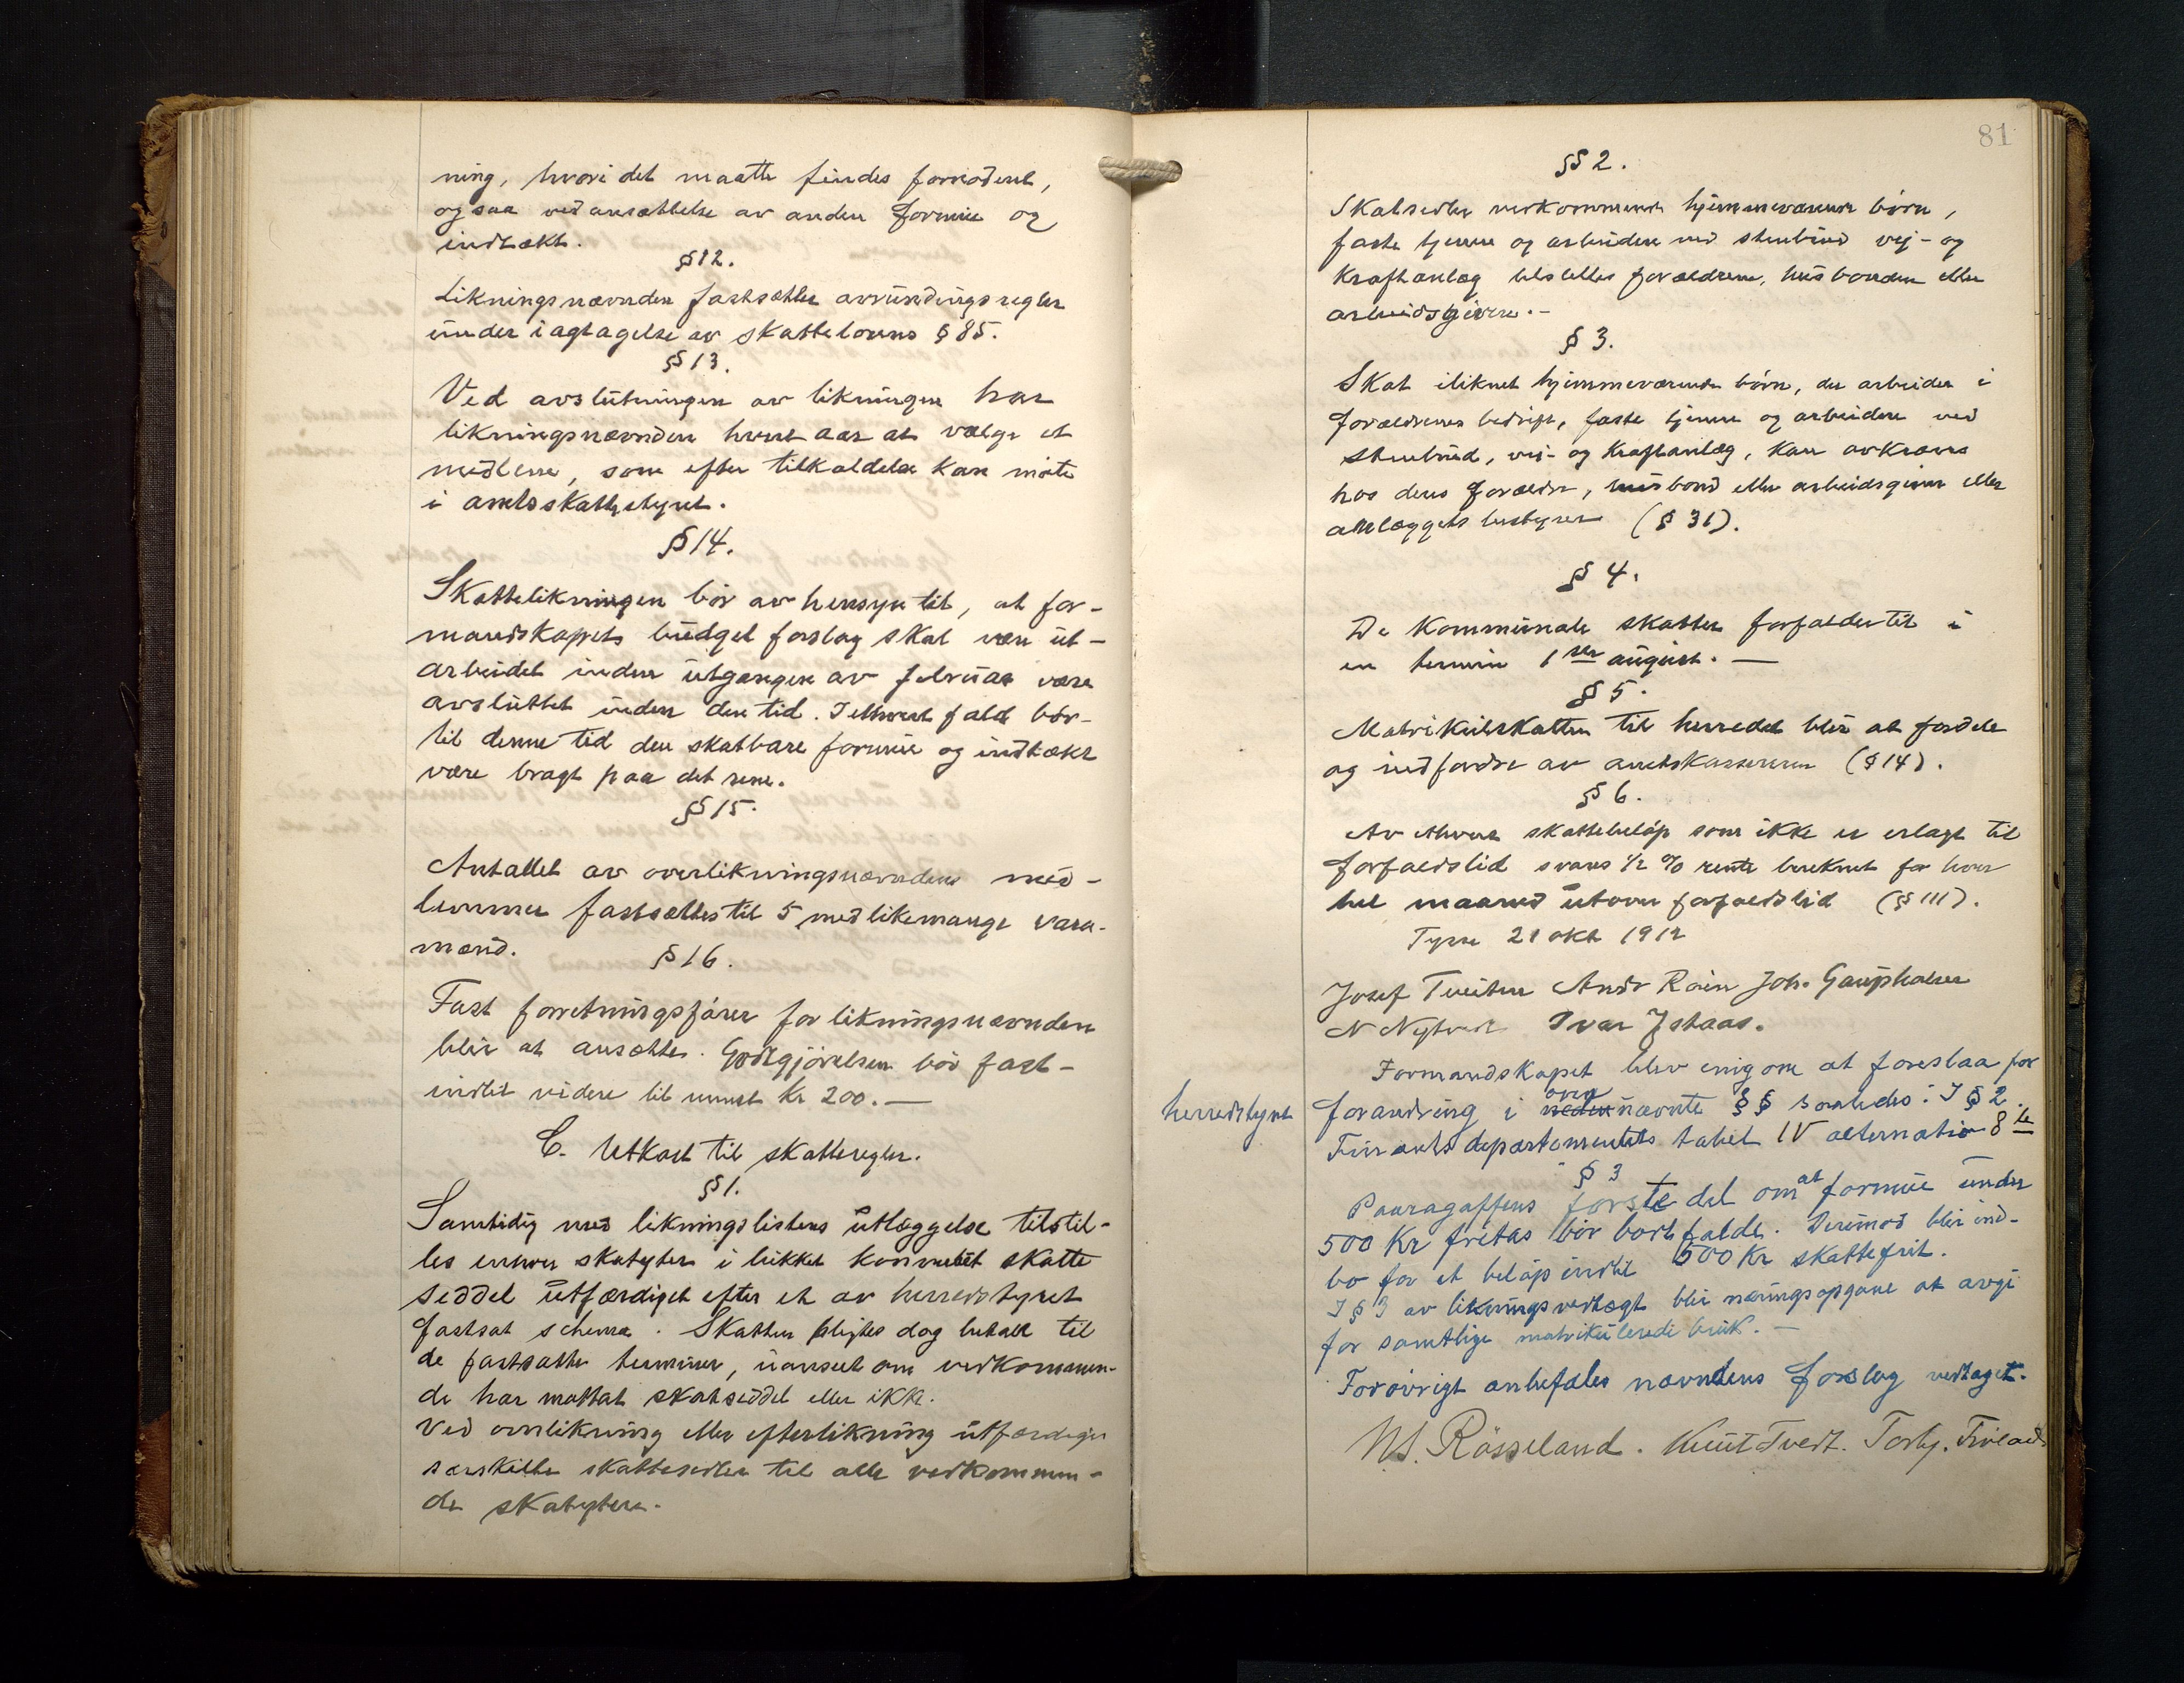 ning, hvori det maatte findes fornødent,
ogsaa ved ansættelse av anden formue og
indtækt.
§ 12.
Likningsnævnden fastsætter avrundingsregler
under iagtagelse av skattelovens § 85.
§ 13.
Ved avslutningen av likningen har
likningsnævnden hvert aar at vælge et
medlem, som efter tilkaldelse kan møte
i amtsskattestyret.
§ 14.
Skattelikningen bør av hensyn til, at for-
mandskapets budgetforslag skal være ut-
arbeidet inden utgangen av februar være
avsluttet inden den tid. I ethvert fald bør
til denne tid den skatbare formue og indtækt
være bragt paa det rene.
§ 15.
Antallet av overlikningsnævndens med-
lemmer fastsættes til 5 med likemange vara-
mænd.
§ 16.
Fast forretningsfører for likningsnævnden
blir at ansætte. Godtgjørelsen bør fast-
indtil videre til minst kr 200.—
C. Utkast til skatteregler.
§ 1.
Samtidig med likningslistens utlæggelse tilstil-
les enhver skatyter i lukket konvolut skatte
seddel utfærdiget efter et av herredstyret
fastsat schema. Skatten pligtes dog betalt til
de fastsatte terminer, uanseet om vedkommen-
de har mottat skatseddel eller ikke.
Ved omlikning eller efterlikning utfærdiges
særskilte skattesedler til alle vedkommen-
de skatytere.
81
§ 2.
Skatsedler vedkommende hjemmeværende børn,
faste tjenere og arbeidere ved stenbrud vej- og
kraftanlæg tilstilles forældrene, husbonden eller
arbeidsgivere.-
§ 3.
Skat iliknet hjemmeværende børn, der arbeider i
forældrenes bedrift, faste tjenere og arbeidere ved
stenbrud, vei- og kraftanlæg, kan avkræves
hos deres forældre, husbond eller arbeidsgiver eller
anlæggets bestyrer (§ 31).
§ 4.
De kommunale skatter forfalder til i
en termin 1ste august.—
§ 5.
Matrikulskatten til herredet blir at fordele
og indfordre av amtskassereren (§ 14).
§ 6.
Av ethvert skattebeløp som ikke er erlagt til
forfaldstid svares ½ % rente beregnet for hver
hel maaned utover forfaldstid (§ 111).
Tysse 21 okt 1912
Josef Tveiten Andr Røen Joh. Gaupholm
N Nytvedt Ivar Istaas.
Formandskapet blev enig om at foreslaa for
herredstyret forandring i neden oven nævnte §§ saaledes: I § 2.
Finantsdepartementets tabel IV alternativ 8de
§ 3
Paaragaffens første del om at formue under
500 Kr fritas bør bortfalde. Derimod blir ind-
bo for et beløp indtil 500 Kr skattefrit.
I § 3 av likningsvedtægt blir næringsopgave at avgi
for samtlige matrikulerede bruk.—
Forøvrigt anbefales nævndens forslag vedtaget.
Knut Tvedt.